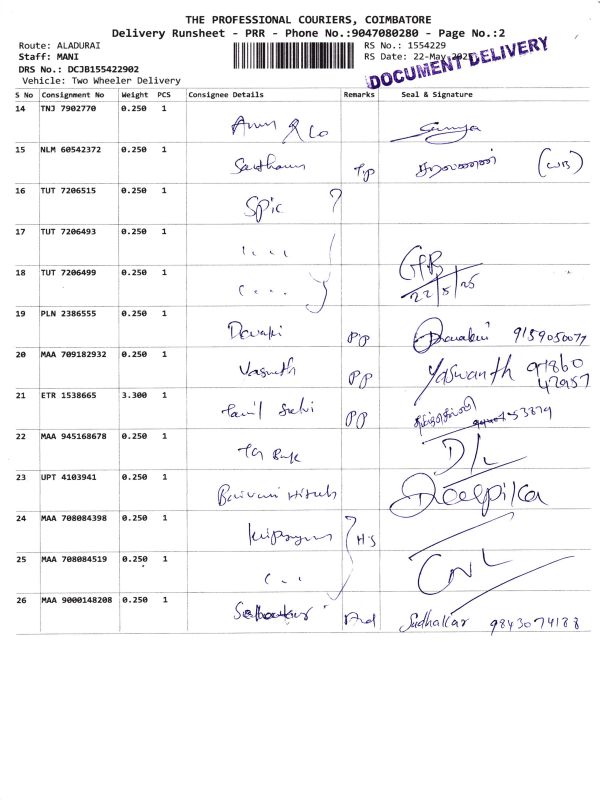 THE PROFESSIONAL COURIERS, COIMBATORE
Delivery Runsheet - PRR - Phone No.:9047080280 - Page No.:2
Route: ALADURAI
RS No.: 1554229
Staff: MANI
RS Date: 22-May-2025
DOCUMENT DELIVERY
DRS No.: DCJB155422902
Vehicle: Two Wheeler Delivery
S No Consignment No Weight PCS Consignee Details Remarks Seal & Signature
14 TNJ 7902770 0.250 1 Arun & Co
15 NLM 60542372 0.250 1 சரவணன் (WB)
16 TUT 7206515 0.250 1 Spic
17 TUT 7206493 0.250 1
18 TUT 7206499 0.250 1 22/5/25
19 PLN 2386555 0.250 1 Devaki PP Devaki 9159050077
20 MAA 709182932 0.250 1 PP Yaswanth 97860 42957
21 ETR 1538665 3.300 1 Tamil Selvi PP
22 MAA 945168678 0.250 1 D/L
23 UPT 4103941 0.250 1 Deepika
24 MAA 708084398 0.250 1 H.S
25 MAA 708084519 0.250 1 CNL
26 MAA 9000148208 0.250 1 Sudhakar 9843074188